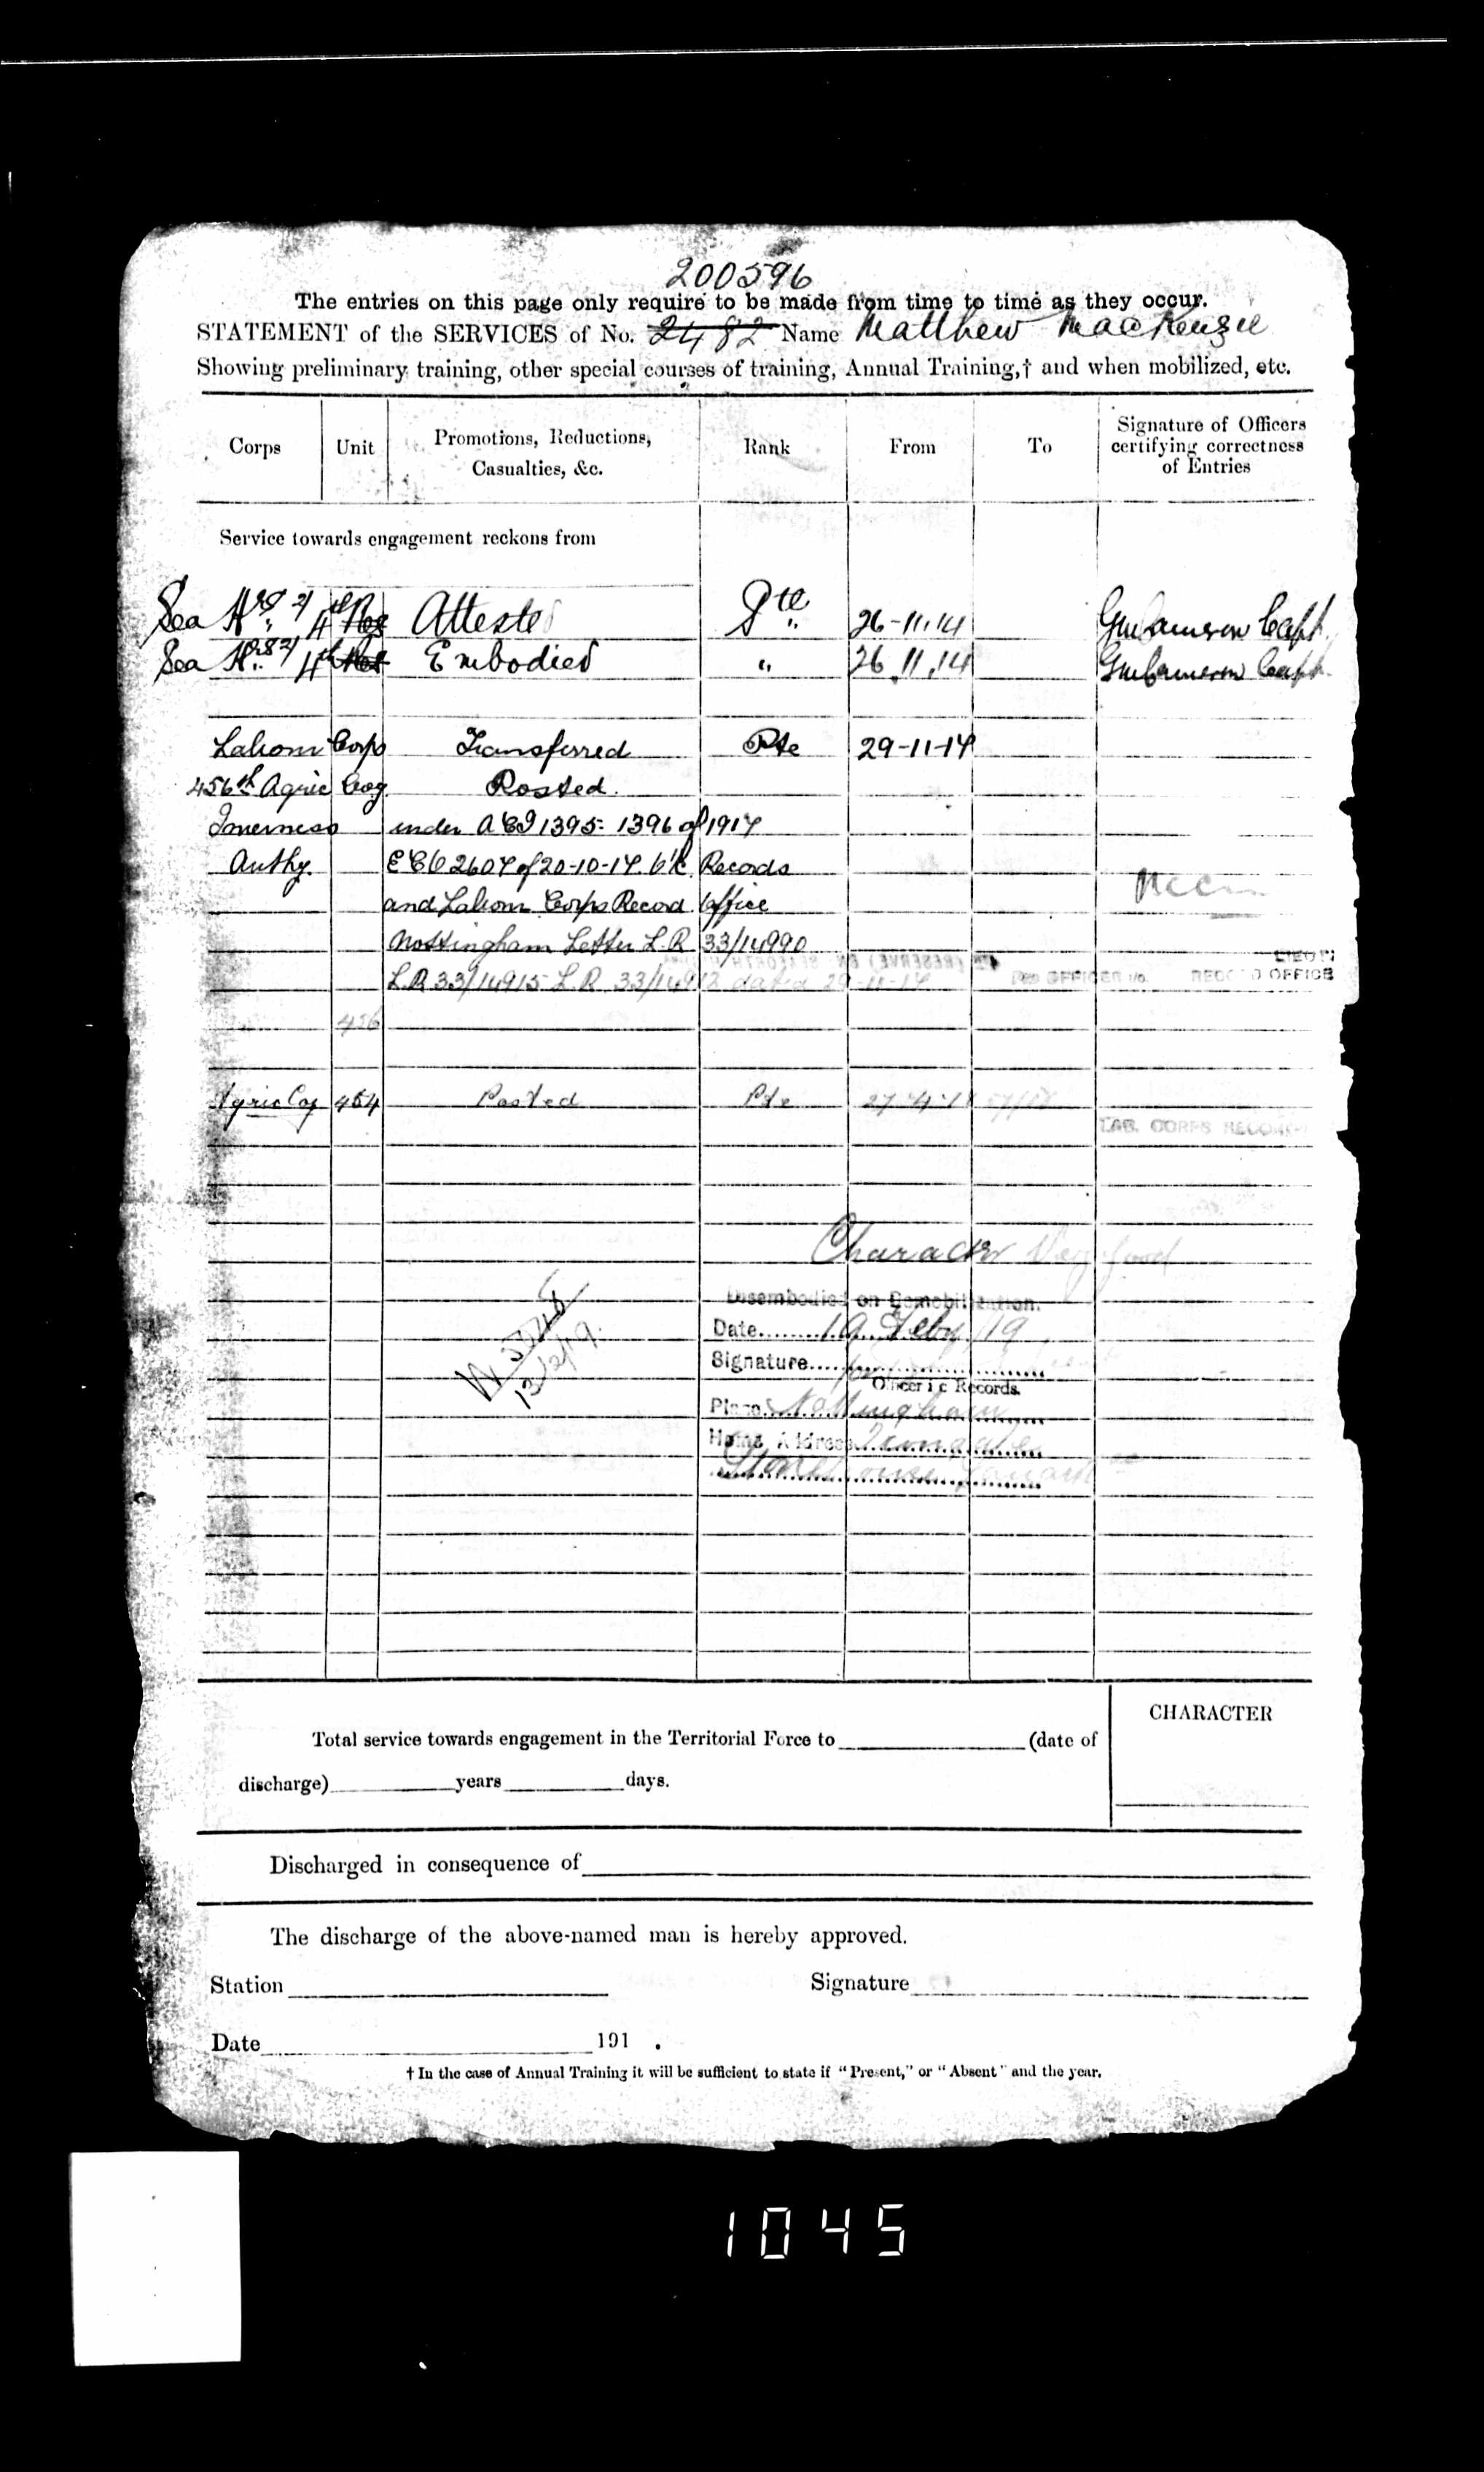 200596
The entries on this page only require to be made from time to time as they occur.
STATEMENT of the SERVICES of No. 2482 Name Matthew MacKenzie
Showing preliminary training, other special courses of training, Annual Training,† and when mobilized, etc.
Corps Unit Promotions, Reductions, Casualties, &c. Rank From To Signature of Officers certifying correctness of Entries
Service towards engagement reckons from
Sea 4th Attested Pte 26-11.14 Cameron Capt.
Sea 4th Embodied " 26.11.14 Cameron Capt.
Labour Corps Transferred Pte 29-11-17
456th Agric Coy Posted.
Inverness under ACI 1395: 1396 of 1917
Authy. 2607 of 20-10-17. Records
and Labour Corps Record Office
Nottingham Letter L.R 33/14990
L.R 33/14915 L.R. 33/14912 dated 29-11-17
RECORD OFFICE
456
Agric Coy 454 Posted Pte 27.4.18
LAB. CORPS RECORDS
Character Very Good
Disembodied on Demobilization.
Date 19 Feby. 19
Signature
Officer i/c Records.
Place Nottingham
Home Address
Stonehouse Lanark
13/2/19.
CHARACTER
Total service towards engagement in the Territorial Force to (date of
discharge) years days.
Discharged in consequence of
The discharge of the above-named man is hereby approved.
Station Signature
Date 191 .
† In the case of Annual Training it will be sufficient to state if "Present," or "Absent" and the year.
1045